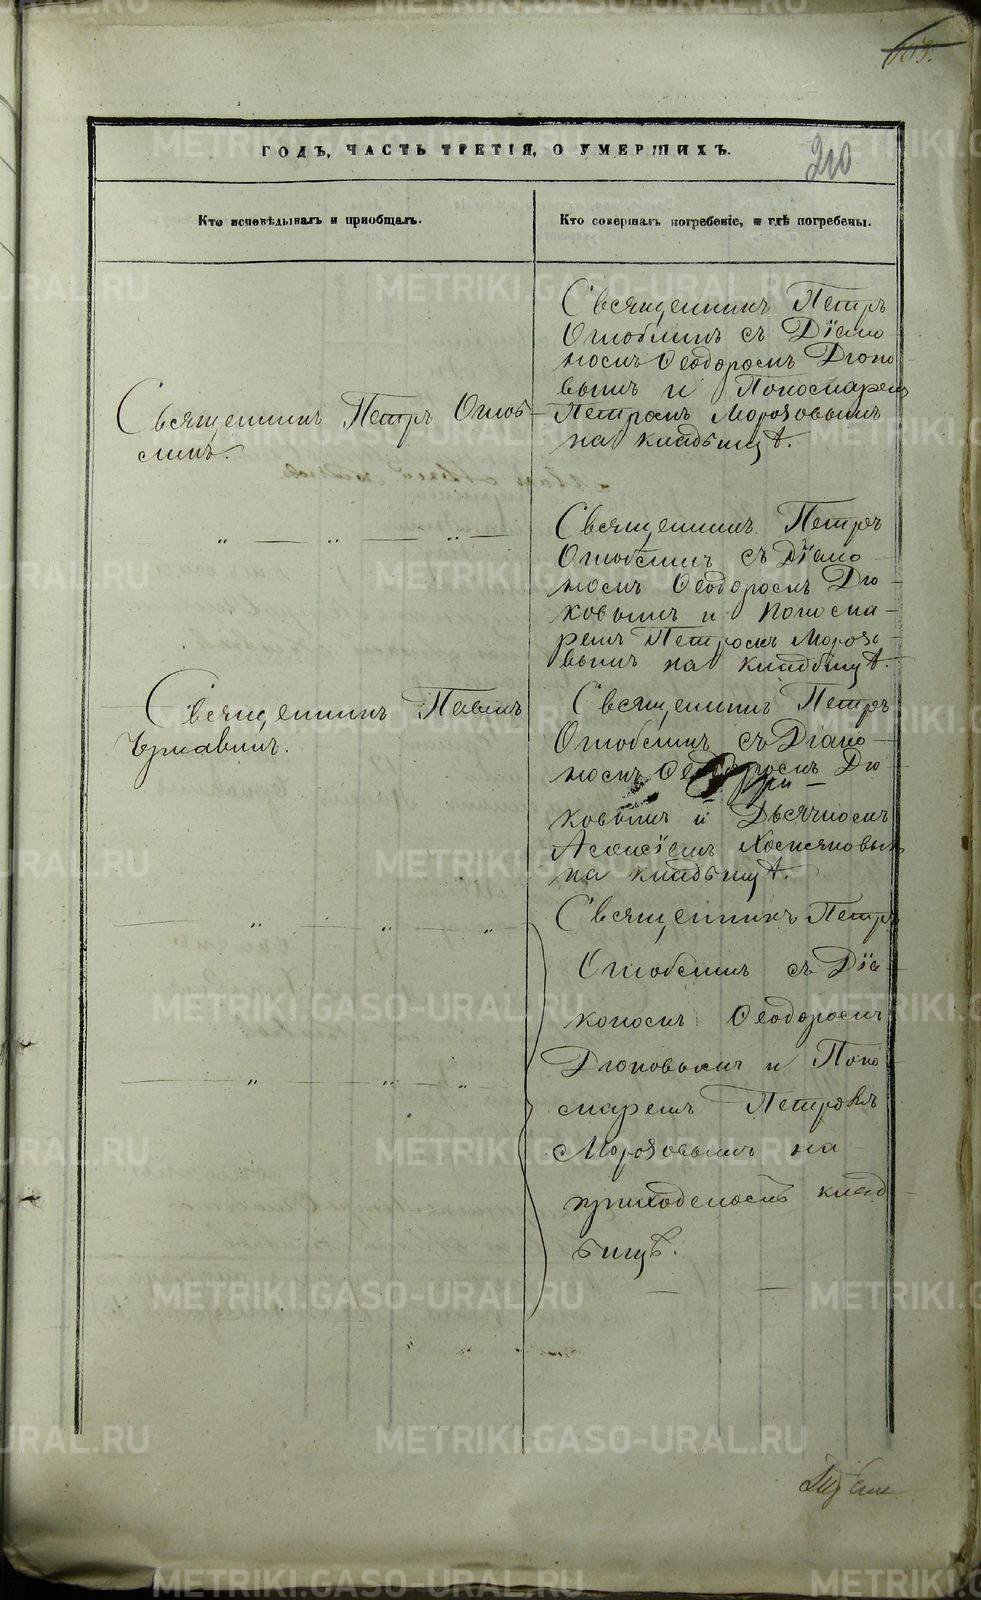 210
ГОДЪ, ЧАСТЬ ТРЕТІЯ, О УМЕРШИХЪ.
Кто исповѣдывалъ и пріобщалъ.
Кто совершалъ погребеніе, и гдѣ погребены.
Священникъ Петръ
съ Діако
номъ Ѳеодоромъ
вымъ и Пономаремъ
Священникъ Петръ
Петромъ Морозовымъ
на кладбищѣ.
Священникъ Петръ
съ Діако
номъ Ѳеодоромъ Дю
ковымъ и Понома
ремъ Петромъ Морозо
вымъ на кладбищѣ.
Священникъ Павелъ
Священникъ Петръ
съ Діако
номъ Ѳеодоромъ Дю
ковымъ и Дьячкомъ
Алексѣемъ
на кладбищѣ.
Священникъ Петръ
съ Діа
кономъ Ѳеодоромъ
Дюковымъ и Поно
маремъ Петромъ
Морозовымъ на
приходскомъ клад
бищѣ.
METRIKI.GASO-URAL.RU